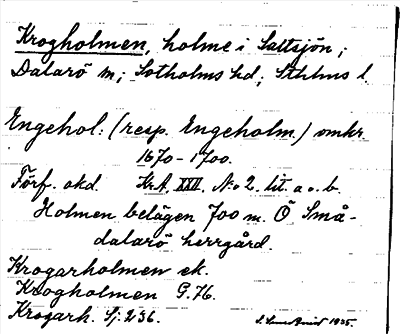 Krogholmen, holme i Saltsjön;
Dalarö sn; Sotholms hd; Sthlms l.
Engehol: (resp. Engeholm.) omkr.
1670-1700.
Förf. okd. KrA. XXII. No 2. lit. a o. b.
Holmen belägen 700 m. Ö Små-
dalarö herrgård.
Krogarholmen ek.
Krogholmen G. 76.
Krogarh. Sj: 236.
1925.